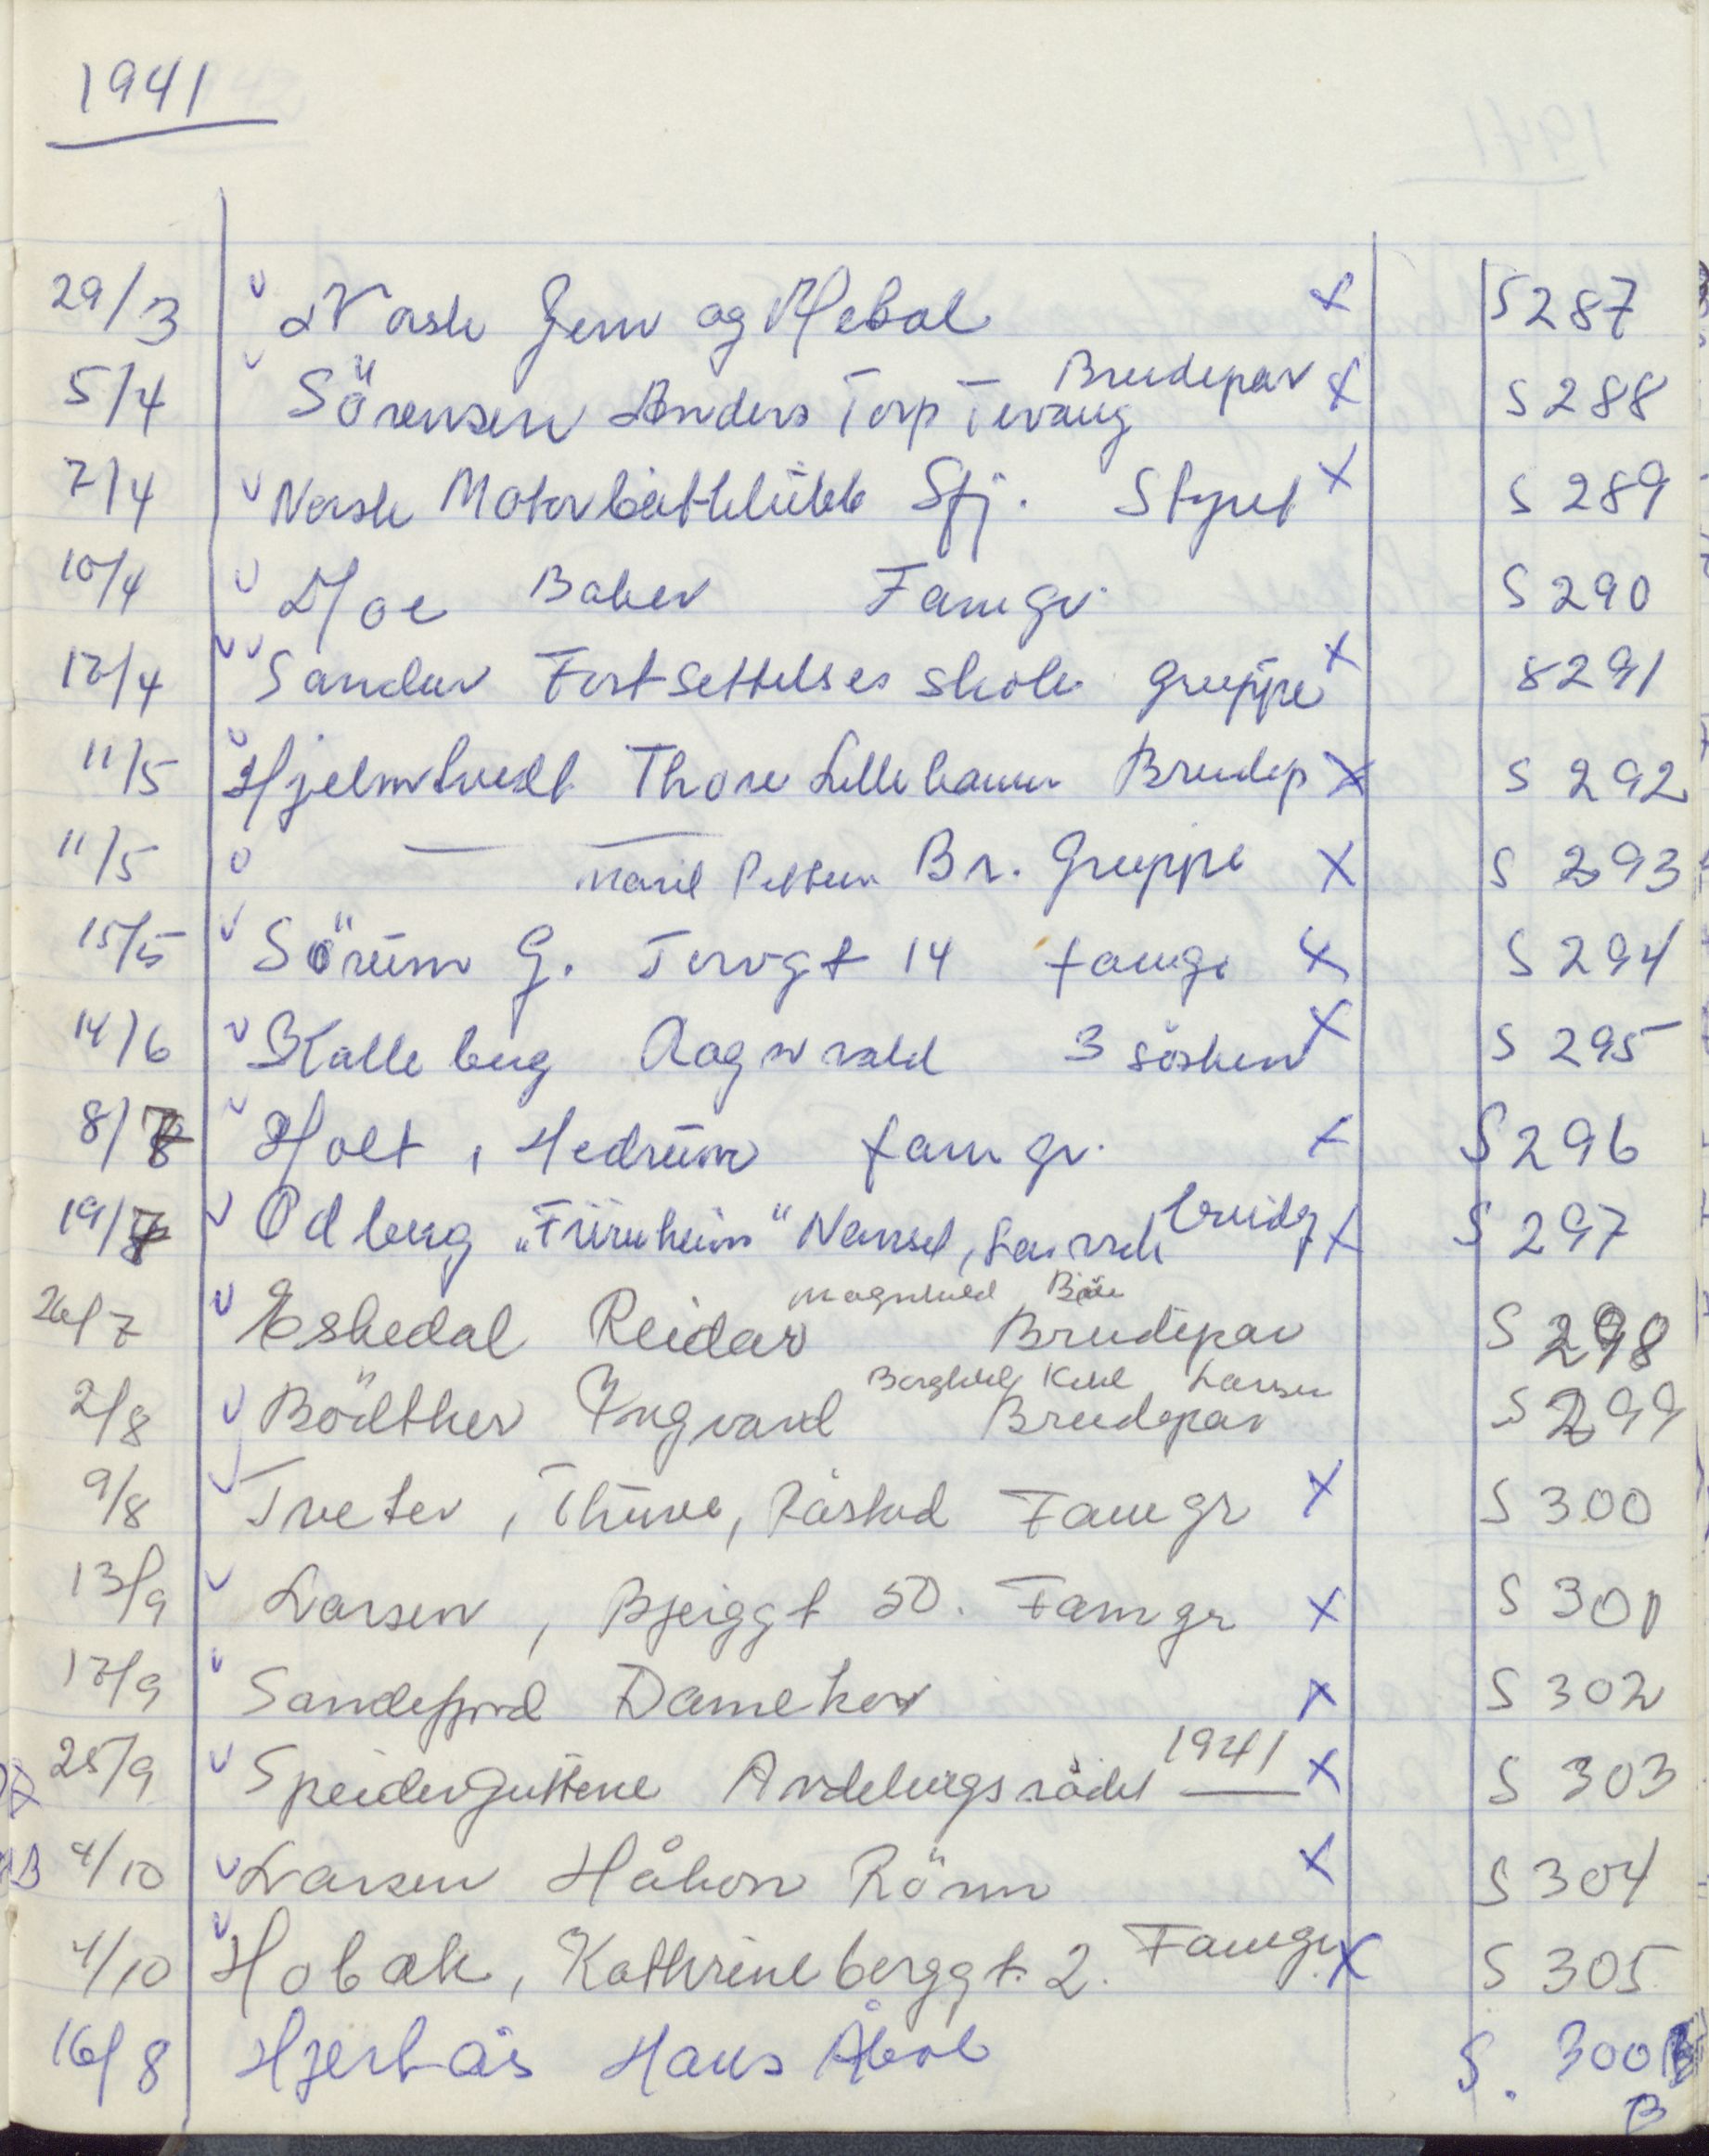 1941
29/3 Norsk Jern og Metal x S 287
5/4 Sörensen Anders Torp Brudepar x S 288
7/4 Norsk Motorbåtklübb Sfj. Styret x S 289
10/4 Moe Baker Famgr. S 290
12/4 Sandar Fortsettelses skole grüppe x S 291
11/5 Hjelmtvedt Thore Brudep x S 292
11/5 — — Br. Gruppe x S 293
15/5 Sörüm G. Torvgt 14 famgr x S 294
14/6 Kalleberg Ragnvald 3 sösken x S 295
8/7 Holt, Hedrüm fam gr. x S 296
19/7 Odberg „Füruheim" Nanset, Larvik brudep x S 297
Magnhild
26/7 Eskedal Reidar Brudepar S 298
Larsen
2/8 Bödtker Ingvard Brudepar S 299
9/8 Tveter, Thüve, Råstad Famgr x S 300
13/9 Larsen, Bjerggt 50. Famgr x S 301
17/9 Sandefjord Damekor x S 302
25/9 Speiderguttene Avdelingsrådet 1941 x S 303
4/10 Larsen Håkon Rönn x S 304
4/10 Hobæk, Kathrineberggt. 2. Famgr. x S 305
16/8 Hjertås Hans S. 300 B